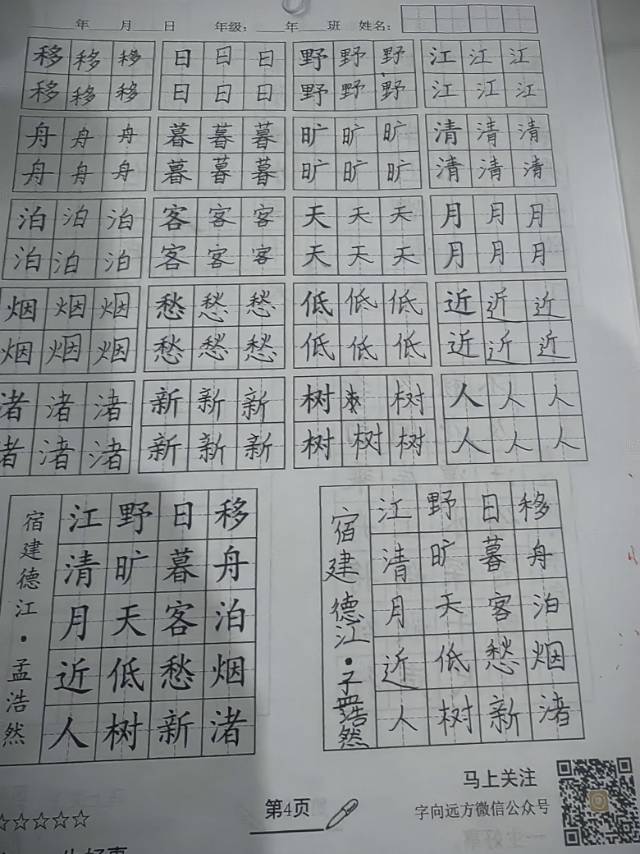 年 月 日 年级: 年 班 姓名:
移 移 移 日 日 日 野 野 野 江 江 江
移 移 移 日 日 日 野 野 野 江 江 江
舟 舟 舟 暮 暮 暮 旷 旷 旷 清 清 清
舟 舟 舟 暮 暮 暮 旷 旷 旷 清 清 清
泊 泊 泊 客 客 客 天 天 天 月 月 月
泊 泊 泊 客 客 客 天 天 天 月 月 月
烟 烟 烟 愁 愁 愁 低 低 低 近 近 近
烟 烟 烟 愁 愁 愁 低 低 低 近 近 近
渚 渚 渚 新 新 新 树 树 人 人 人
渚 渚 渚 新 新 新 树 树 树 人 人 人
宿建德江·孟浩然
移舟泊烟渚
日暮客愁新
野旷天低树
江清月近人
宿建德江·孟浩然
移舟泊烟渚
日暮客愁新
野旷天低树
江清月近人
马上关注
字向远方微信公众号
第4页
☆☆☆☆☆